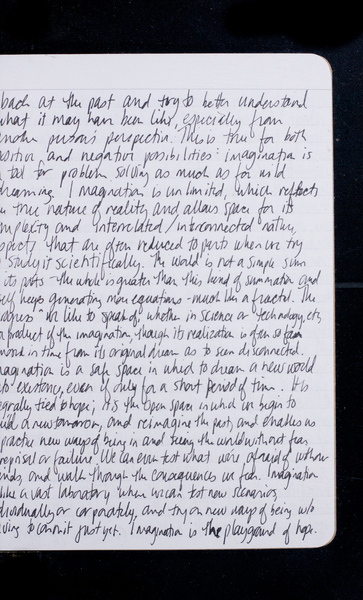 back at the past and try to better understand
what it may have been like, especially from
another person's perspective. This is true for both
positive and negative possibilities: imagination is
a tool for problem solving as much as for wild
dreaming. Imagination is unlimited, which reflects
the true nature of reality and allows space for its
complexity and interrelated/interconnected nature,
aspects that are often reduced to parts when we try
to study it scientifically. The world is not a simple sum
its parts - the whole is greater than this kind of summation and
itself keeps generating more equations - much like a fractal. The
"progress" we like to speak of, whether in science or technology, etc,
a product of the imagination, though its realization is often so far
moved in time from its original dream as to seem disconnected.
Imagination is a safe space in which to dream a new world
into existence, even if only for a short period of time. It is
integrally tied to hope; it is the open space in which we begin to
build a new tomorrow, and reimagine the past, and enables us
practice new ways of being in and seeing the world without fear
reprisal or failure. We can even test what we're afraid of within
minds, and walk through the consequences in fear. Imagination
like a vast laboratory where we can test new scenarios,
individually or corporately, and try on new ways of being w/o
having to commit just yet. Imagination is the playground of hope.